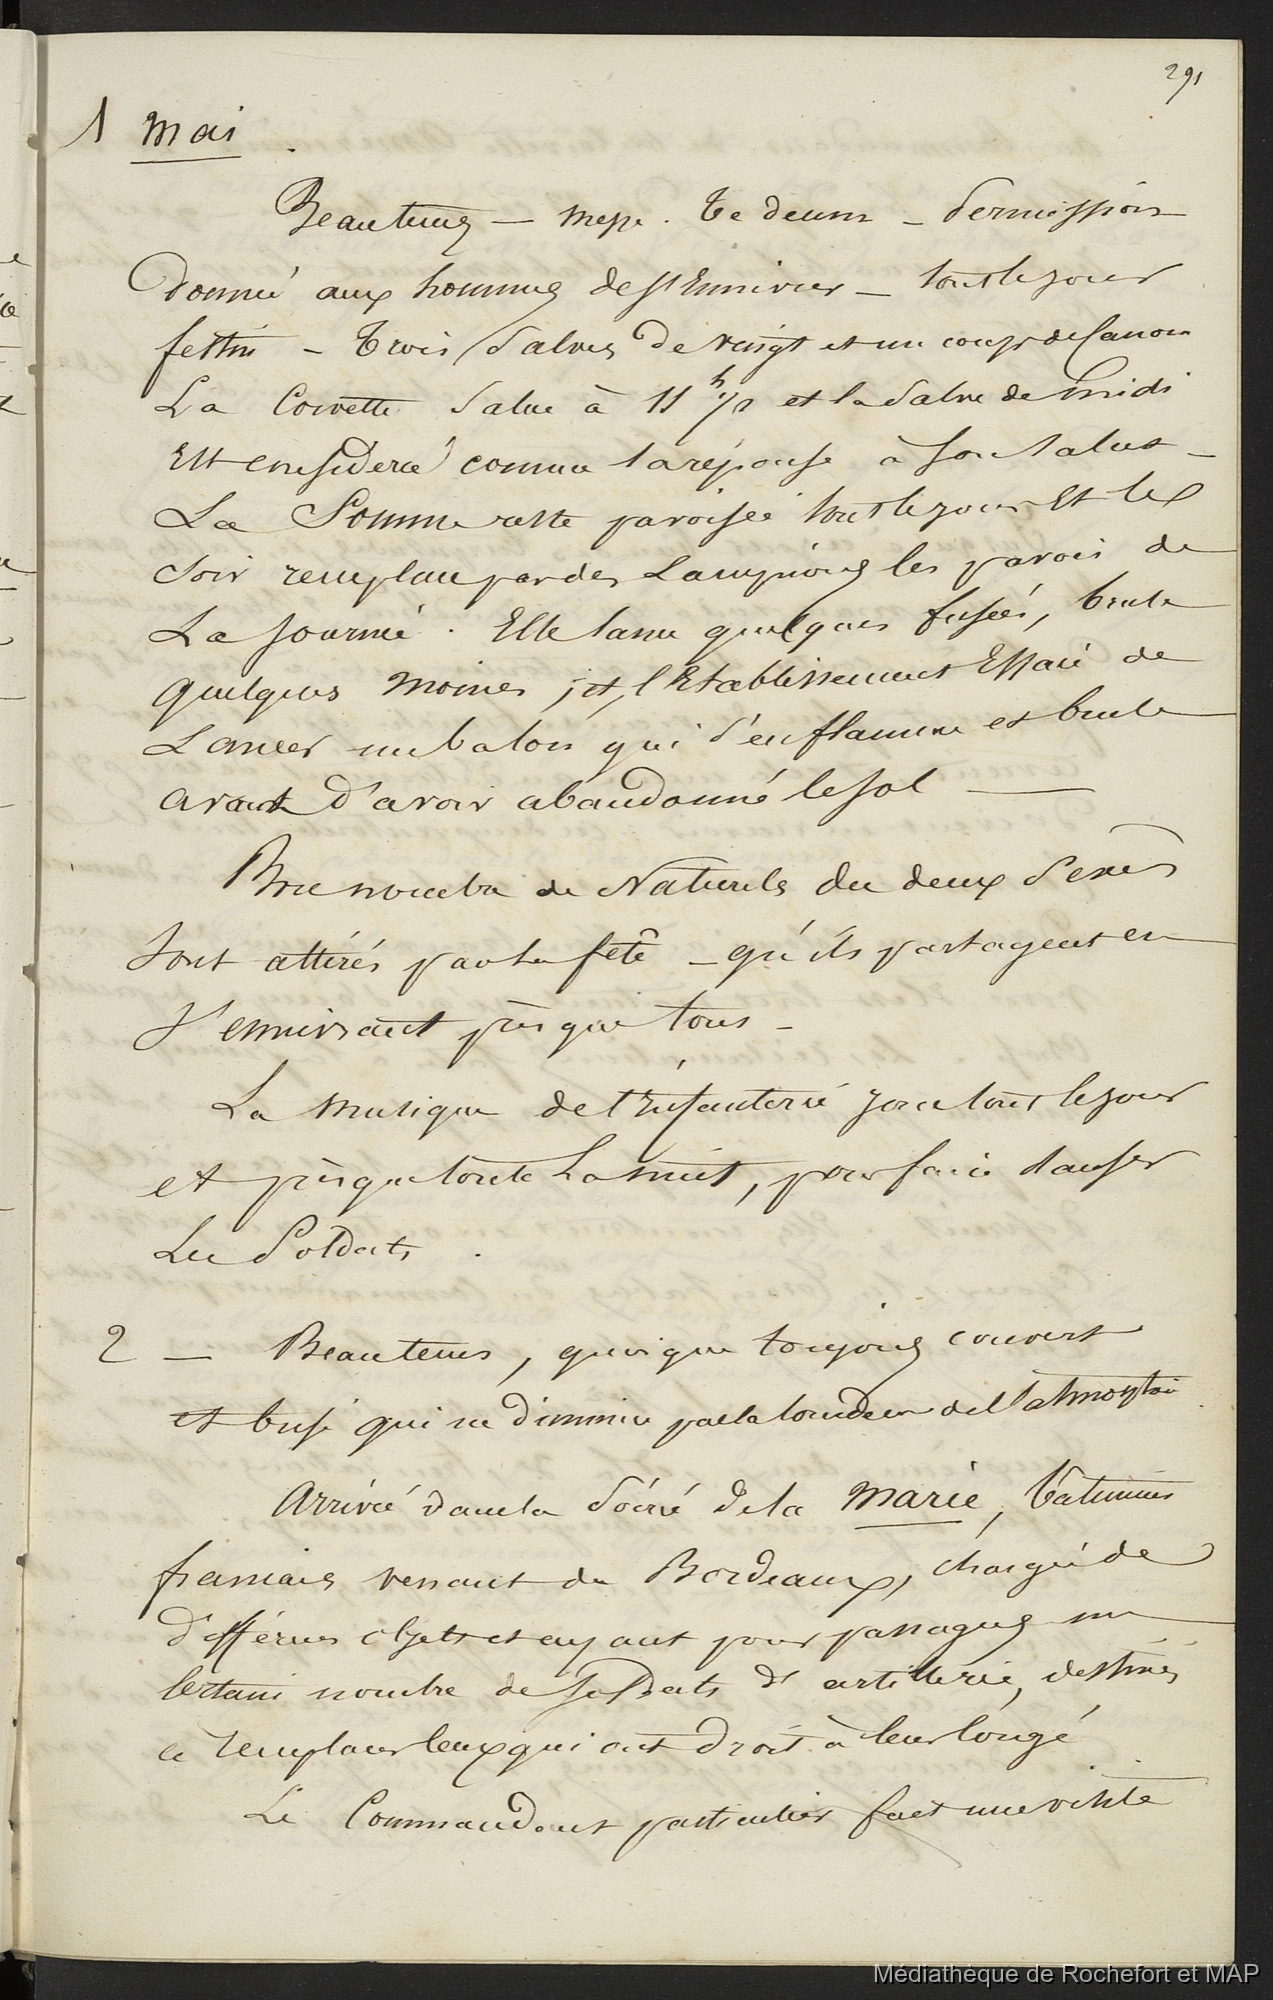 291
1 Mai.
Beautems — Messe. Te deum — Permission
donnée aux hommes de s'Ennivrer — tout le jour
festin — Trois Salves de vingt et un coups de Canon
La Corvette Salue à 11 h 1/2 et la Salve de midi
Est considérée comme la réponse à son Salut —
La Somme reste pavoisée tout le jour Et le
Soir remplace par des Lampions les pavois de
La Journée. Elle lance quelques fusées, brule
quelques moines, et, l'Etablissement Essaie de
Lancer un balon qui s'enflamme et brule
avant d'avoir abandonné le sol —
Bon nombre de Naturels des deux Sexes
Sont attirés par la fête — qu'ils partagent en
S'ennivrant presque tous —
La musique de l'infanterie joue tout le jour
et presque toute La nuit, pour faire danser
Les Soldats.
2 — Beautems, quoique toujours couvert
et brise qui se diminue par la lourdeur de l'atmosphère
Arrivée dans la Soirée de la Marie, bâtiment
français venant de Bordeaux, chargé de
différens objets et ayant pour passagers un
Certain nombre de Soldats d'artillerie, destinés
a remplacer ceux qui ont droit à leur Congé
Le Commandant particulier fait une visite
Médiathèque de Rochefort et MAP